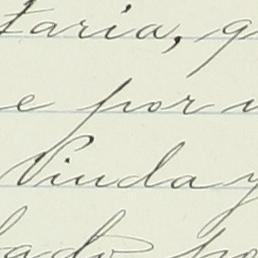 taria, q
e por v
Viuda y
tado po